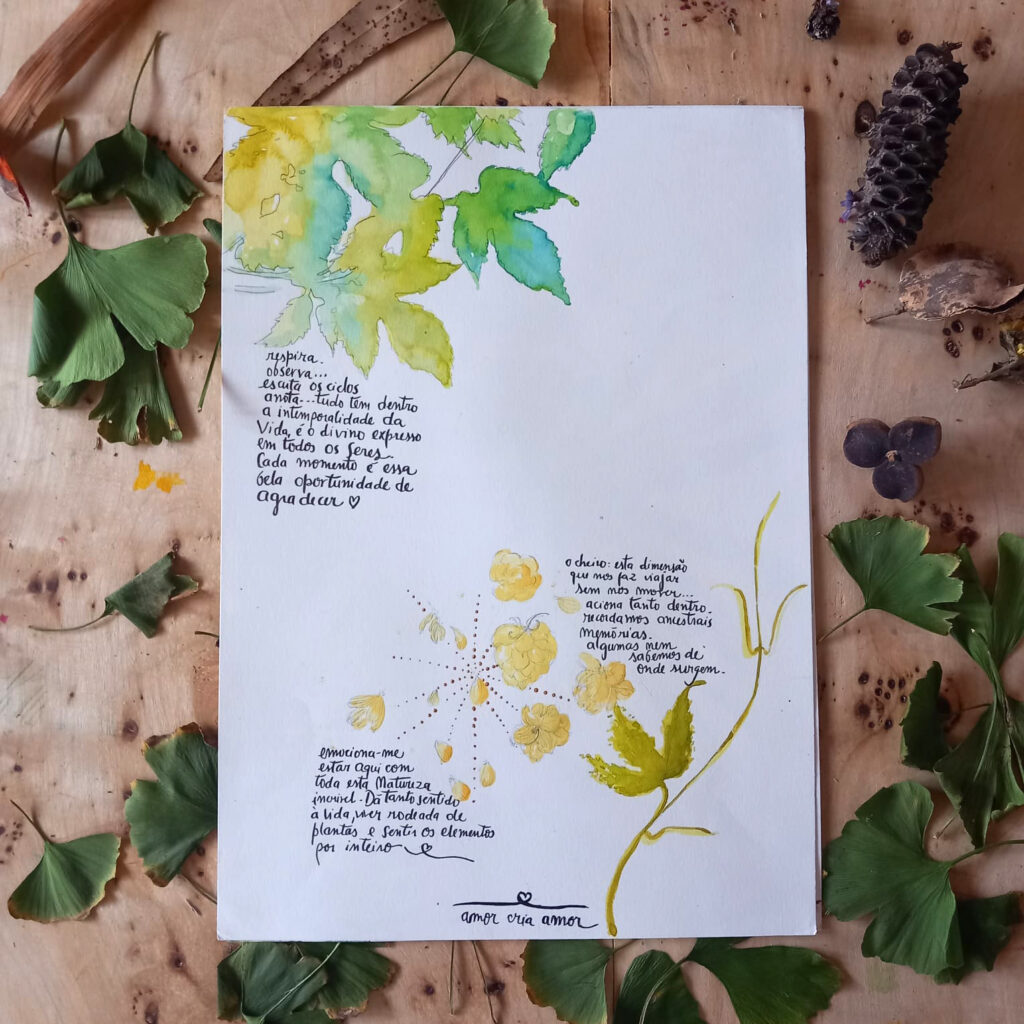 respira.
observa...
escuta os ciclos
anota...tudo tem dentro
a intemporalidade da
Vida, é o divino expresso
em todos os seres.
Cada momento é essa
bela oportunidade de
agradecer
o cheiro: esta dimensão
que nos faz viajar
sem nos mover...
aciona tanto dentro.
recordamos ancestrais
memórias.
algumas nem
sabemos de
onde surgem.
emociona-me
estar aqui com
toda esta Natureza
incrível. Dá tanto sentido
à vida, viver rodeada de
plantas e sentir os elementos
por inteiro
amor cria amor